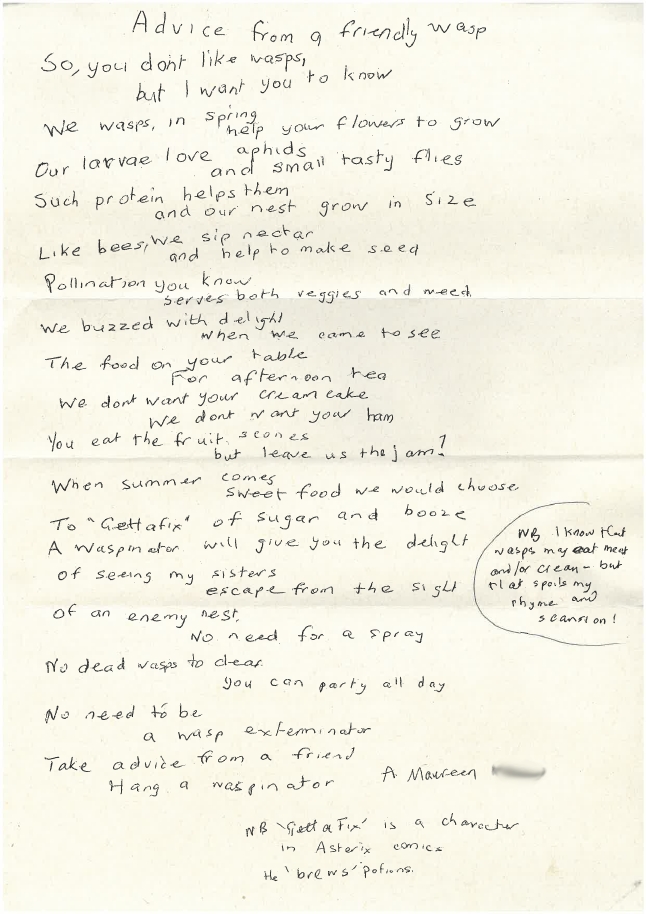 Advice from a friendly wasp
So, you dont like wasps,
but I want you to know
We wasps, in spring
help your flowers to grow
Our larvae love aphids
and small tasty flies
Such protein helps them
and our nest grow in size
Like bees, we sip nectar
and help to make seed
Pollination you know
serves both veggies and weed
We buzzed with delight
when we came to see
The food on your table
For afternoon tea
We dont want your cream cake
We dont want your ham
You eat the fruit scones
but leave us the jam!
When summer comes
sweet food we would choose
To "Gettafix" of sugar and booze
A waspinator will give you the delight
of seeing my sisters
escape from the sight
of an enemy nest.
No need for a spray
No dead wasps to clear
You can party all day
No need to be
a wasp exterminator
Take advice from a friend
Hang a waspinator
A Maureen
NB I know that
wasps may eat meat
and/or cream - but
that spoils my
rhyme and
scansion!
NB 'GettaFix' is a character
in Asterix comics
He 'brews' potions.